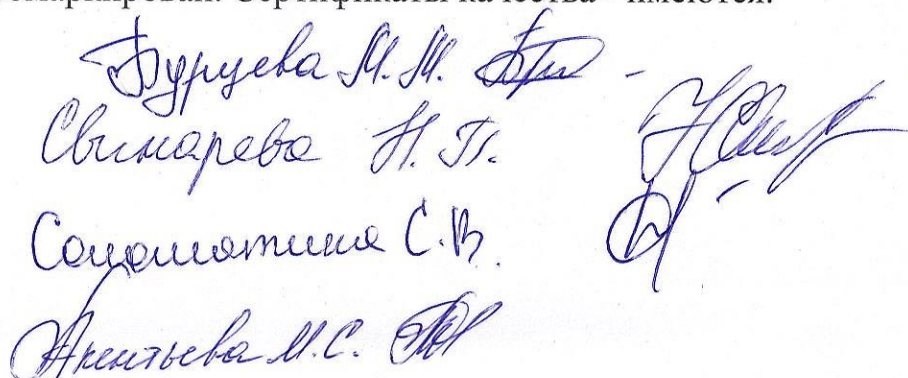 омаркирован. Сертификаты качества - имеются.
Бурцева М.М.
Свинарева Н.П.
Соломатина С.В.
Акентьева М.С.